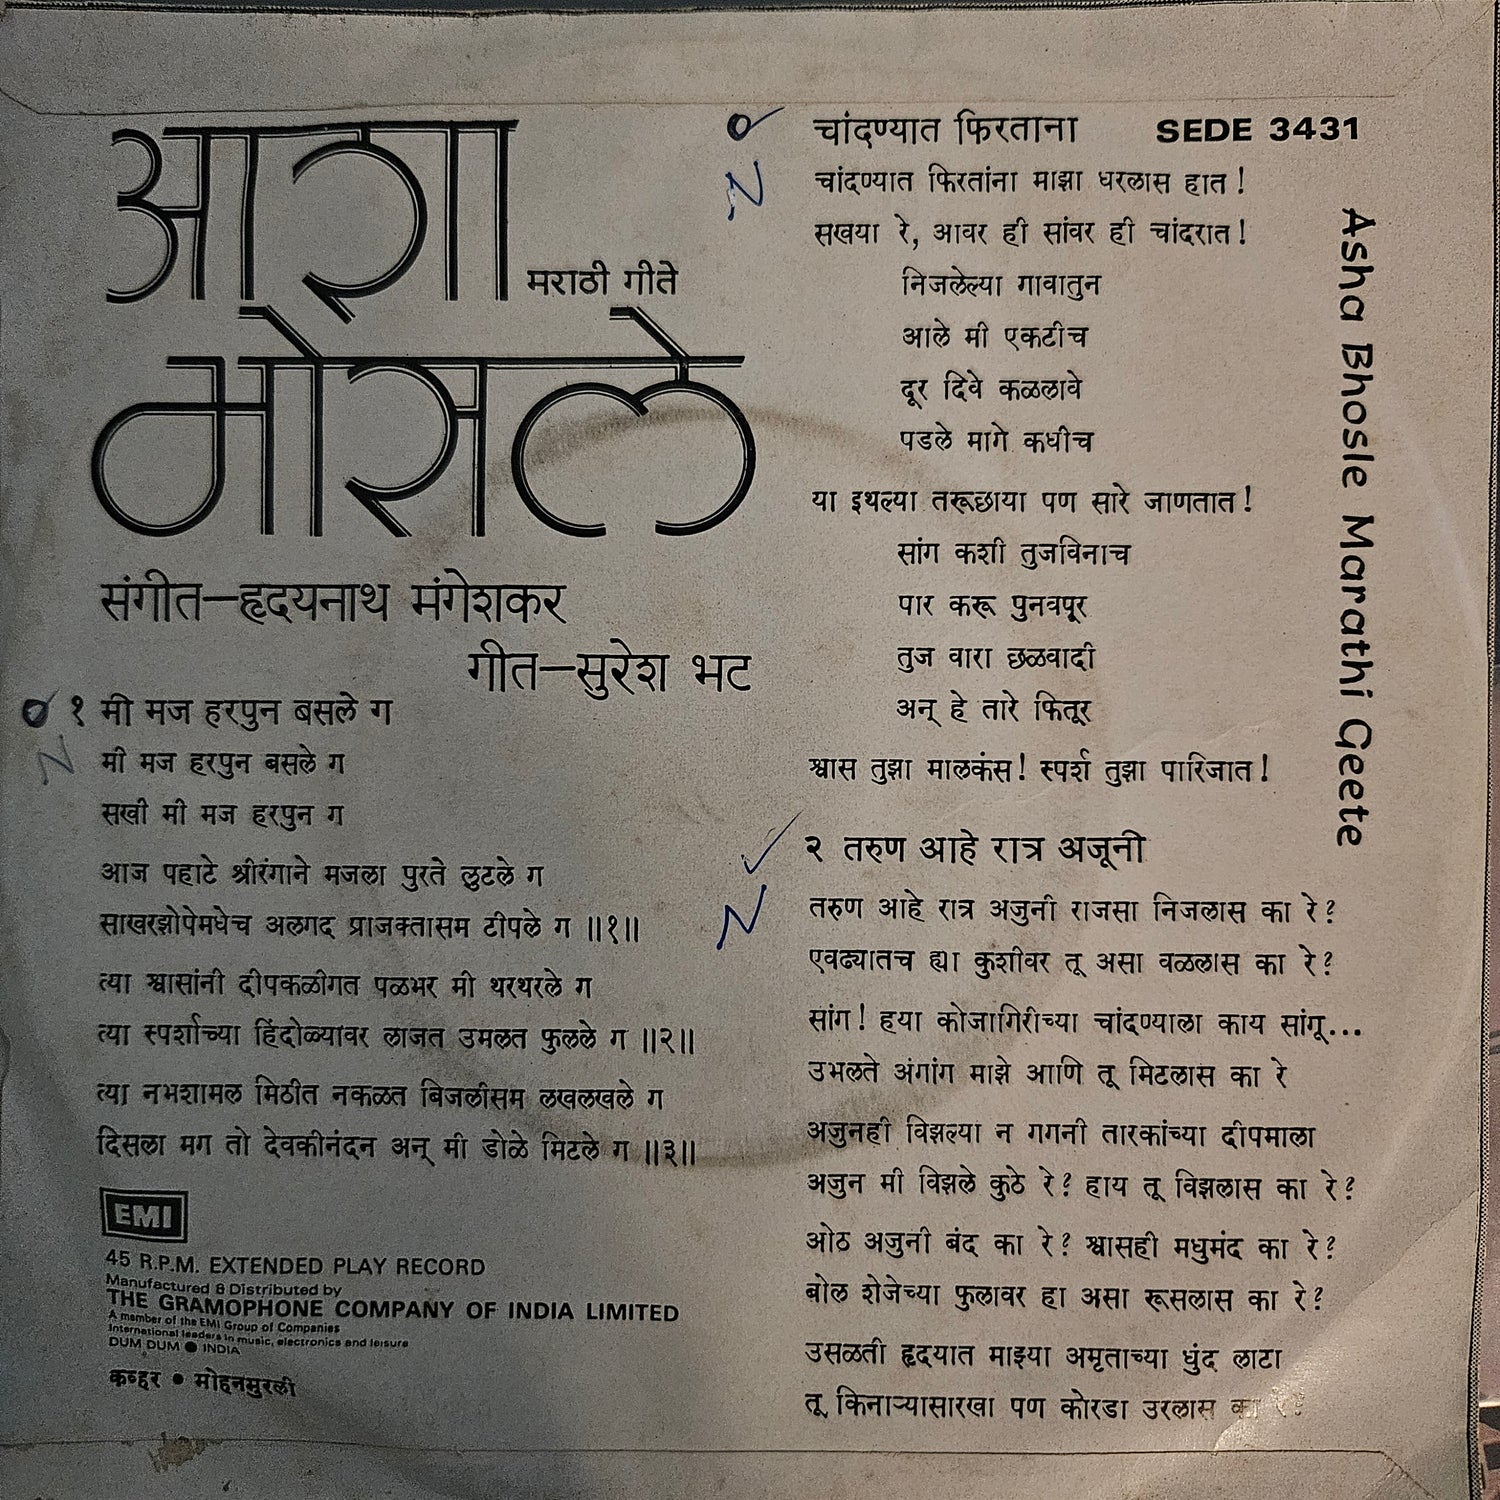 आशा
मराठी गीते
भोसले
संगीत–हृदयनाथ मंगेशकर
गीत–सुरेश भट
१ मी मज हरपुन बसले ग
N
मी मज हरपुन बसले ग
सखी मी मज हरपुन ग
आज पहाटे श्रीरंगाने मजला पुरते लुटले ग
साखरझोपेमधेच अलगद प्राजक्तासम टीपले ग ॥१॥
त्या श्वासांनी दीपकळीगत पळभर मी थरथरले ग
त्या स्पर्शाच्या हिंदोळ्यावर लाजत उमलत फुलले ग ॥२॥
त्या नभशामल मिठीत नकळत बिजलीसम लखलखले ग
दिसला मग तो देवकीनंदन अन् मी डोळे मिटले ग ॥३॥
EMI
45 R.P.M. EXTENDED PLAY RECORD
Manufactured & Distributed by
THE GRAMOPHONE COMPANY OF INDIA LIMITED
A member of the EMI Group of Companies
International leaders in music, electronics and leisure
DUM DUM ● INDIA
कव्हर • मोहनमुरली
चांदण्यात फिरताना SEDE 3431
N
चांदण्यात फिरतांना माझा धरलास हात!
सखया रे, आवर ही सांवर ही चांदरात!
निजलेल्या गावातुन
आले मी एकटीच
दूर दिवे कळलावे
पडले मागे कधीच
या इथल्या तरूछाया पण सारे जाणतात!
सांग कशी तुजविनाच
पार करू पुनवपूर
तुज वारा छळवादी
अन् हे तारे फितूर
श्वास तुझा मालकंस! स्पर्श तुझा पारिजात!
२ तरुण आहे रात्र अजूनी
N
तरुण आहे रात्र अजुनी राजसा निजलास का रे?
एवढ्यातच ह्या कुशीवर तू असा वळलास का रे?
सांग! हया कोजागिरीच्या चांदण्याला काय सांगू...
उभलते अंगांग माझे आणि तू मिटलास का रे
अजुनही विझल्या न गगनी तारकांच्या दीपमाला
अजुन मी विझले कुठे रे? हाय तू विझलास का रे?
ओठ अजुनी बंद का रे? श्वासही मधुमंद का रे?
बोल शेजेच्या फुलावर हा असा रूसलास का रे?
उसळती हृदयात माझ्या अमृताच्या धुंद लाटा
तू किनाऱ्यासारखा पण कोरडा उरलास का रे?
Asha Bhosle Marathi Geete